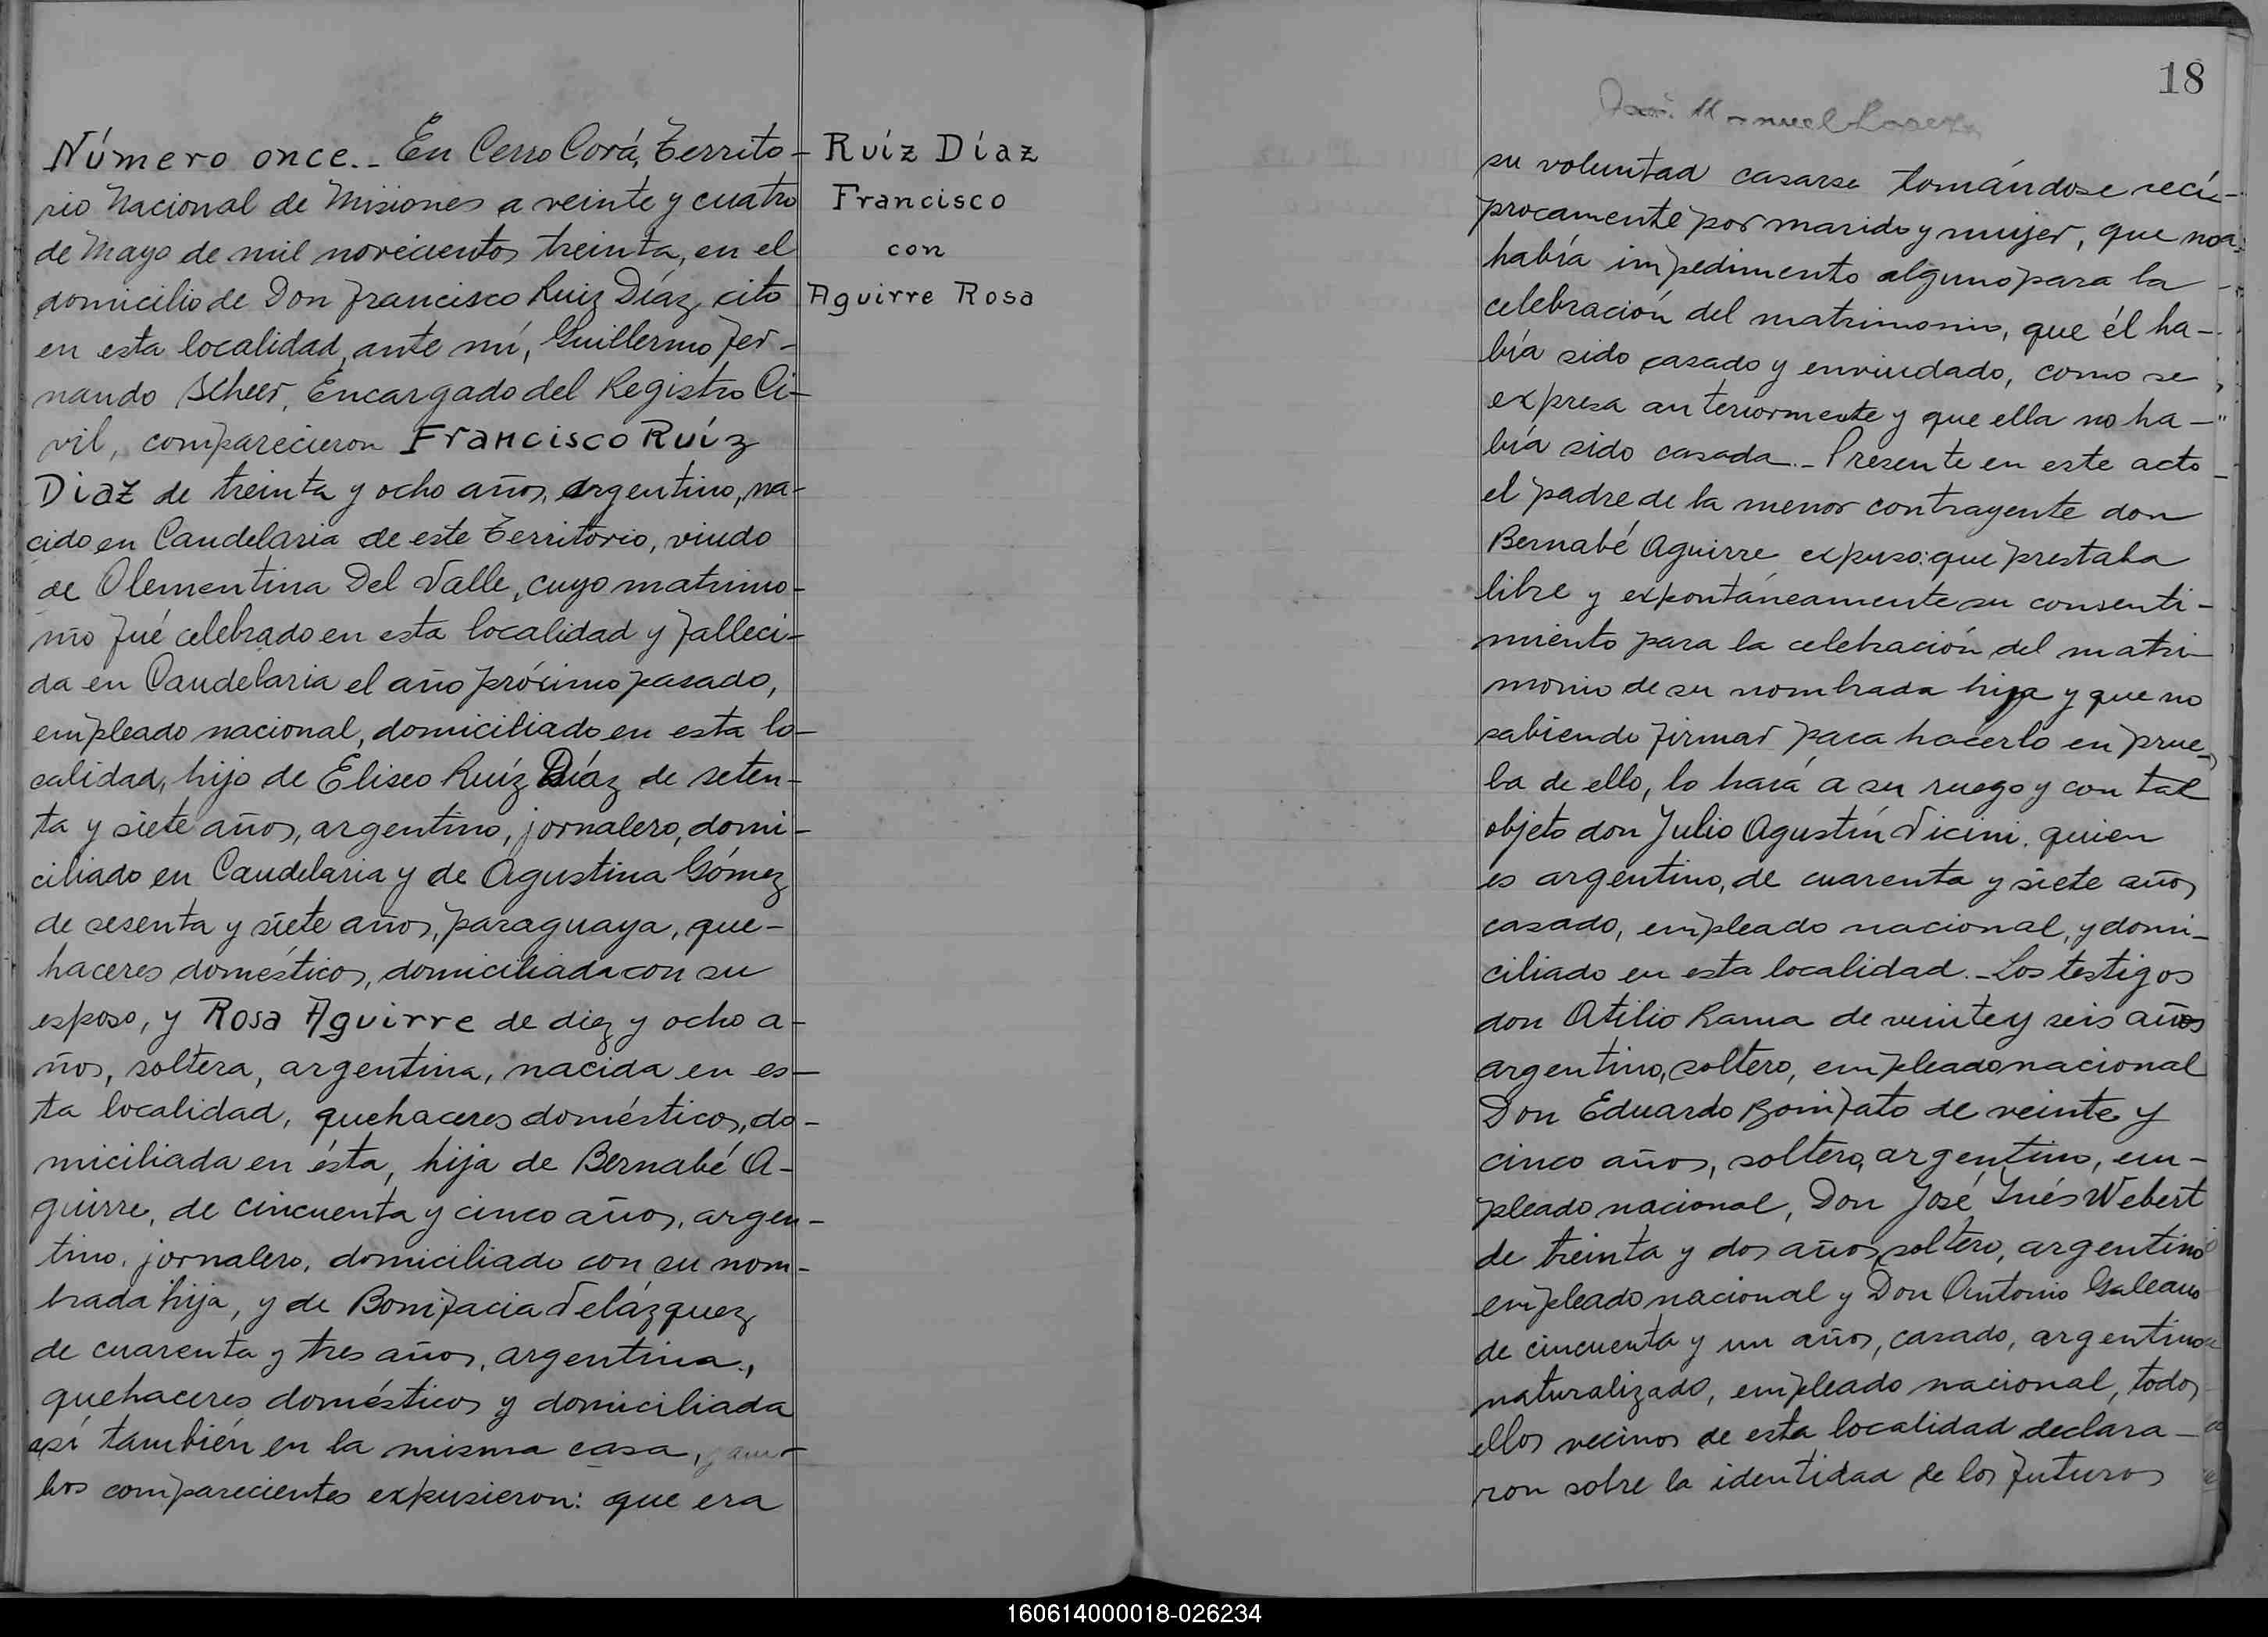 Número once.- En Cerro Corá, Territo-
rio Nacional de Misiones a veinte y cuatro
de Mayo de mil novecientos treinta, en el
domicilio de Don Francisco Ruiz Díaz, cito
en esta localidad, ante mí, Guillermo Fer-
nando Scheer, Encargado del Registro Ci-
vil, comparecieron Francisco Ruíz
Diaz de treinta y ocho años, argentino, na-
cido en Candelaria de este Territorio, viudo
de Clementina Del Valle, cuyo matrimo-
nio fué celebrado en esta localidad y falleci-
da en Candelaria el año próximo pasado,
empleado nacional, domiciliado en esta lo-
calidad, hijo de Eliseo Ruíz Díaz de seten-
ta y siete años, argentino, jornalero, domi-
ciliado en Candelaria y de Agustina Gómez
de sesenta y siete años, paraguaya, que-
haceres domésticos, domiciliada con su
esposo, y Rosa Aguirre de diez y ocho a-
ños, soltera, argentina, nacida en es-
ta localidad, quehaceres domésticos, do-
miciliada en ésta, hija de Bernabé A-
guirre, de cincuenta y cinco años, argen-
tino, jornalero, domiciliado con su nom-
brada hija, y de Bonifacia Velázquez
de cuarenta y tres años, argentina,
quehaceres domésticos y domiciliada
así también en la misma casa, y am-
bos comparecientes expusieron: que era
Ruíz Díaz
Francisco
con
Aguirre Rosa
18
Manuel
su voluntad casarse tomándose recí-
procamente por marido y mujer, que no
había impedimento alguno para la
celebración del matrimonio, que él ha-
bía sido casado y enviudado, como se
expresa anteriormente y que ella no ha-
bía sido casada.- Presente en este acto
el padre de la menor contrayente don
Bernabé Aguirre expuso: que prestaba
libre y expontáneamente su consenti-
miento para la celebración del matri-
monio de su nombrada hija y que no
sabiendo firmar para hacerlo en prue-
ba de ello, lo hará a su ruego y con tal
objeto don Julio Agustín Vicini, quien
es argentino, de cuarenta y siete años
casado, empleado nacional, y domi-
ciliado en esta localidad.- Los testigos
don Atilio Rama de veinte y seis años
argentino, soltero, empleado nacional
Don Eduardo Bonifato de veinte y
cinco años, soltero, argentino, em-
pleado nacional, Don José Inés Webert
de treinta y dos años, soltero, argentino
empleado nacional y Don Antonio Galeano
de cincuenta y un años, casado, argentino
naturalizado, empleado nacional, todos
ellos vecinos de esta localidad declara-
ron sobre la identidad de los futuros
160614000018-026234